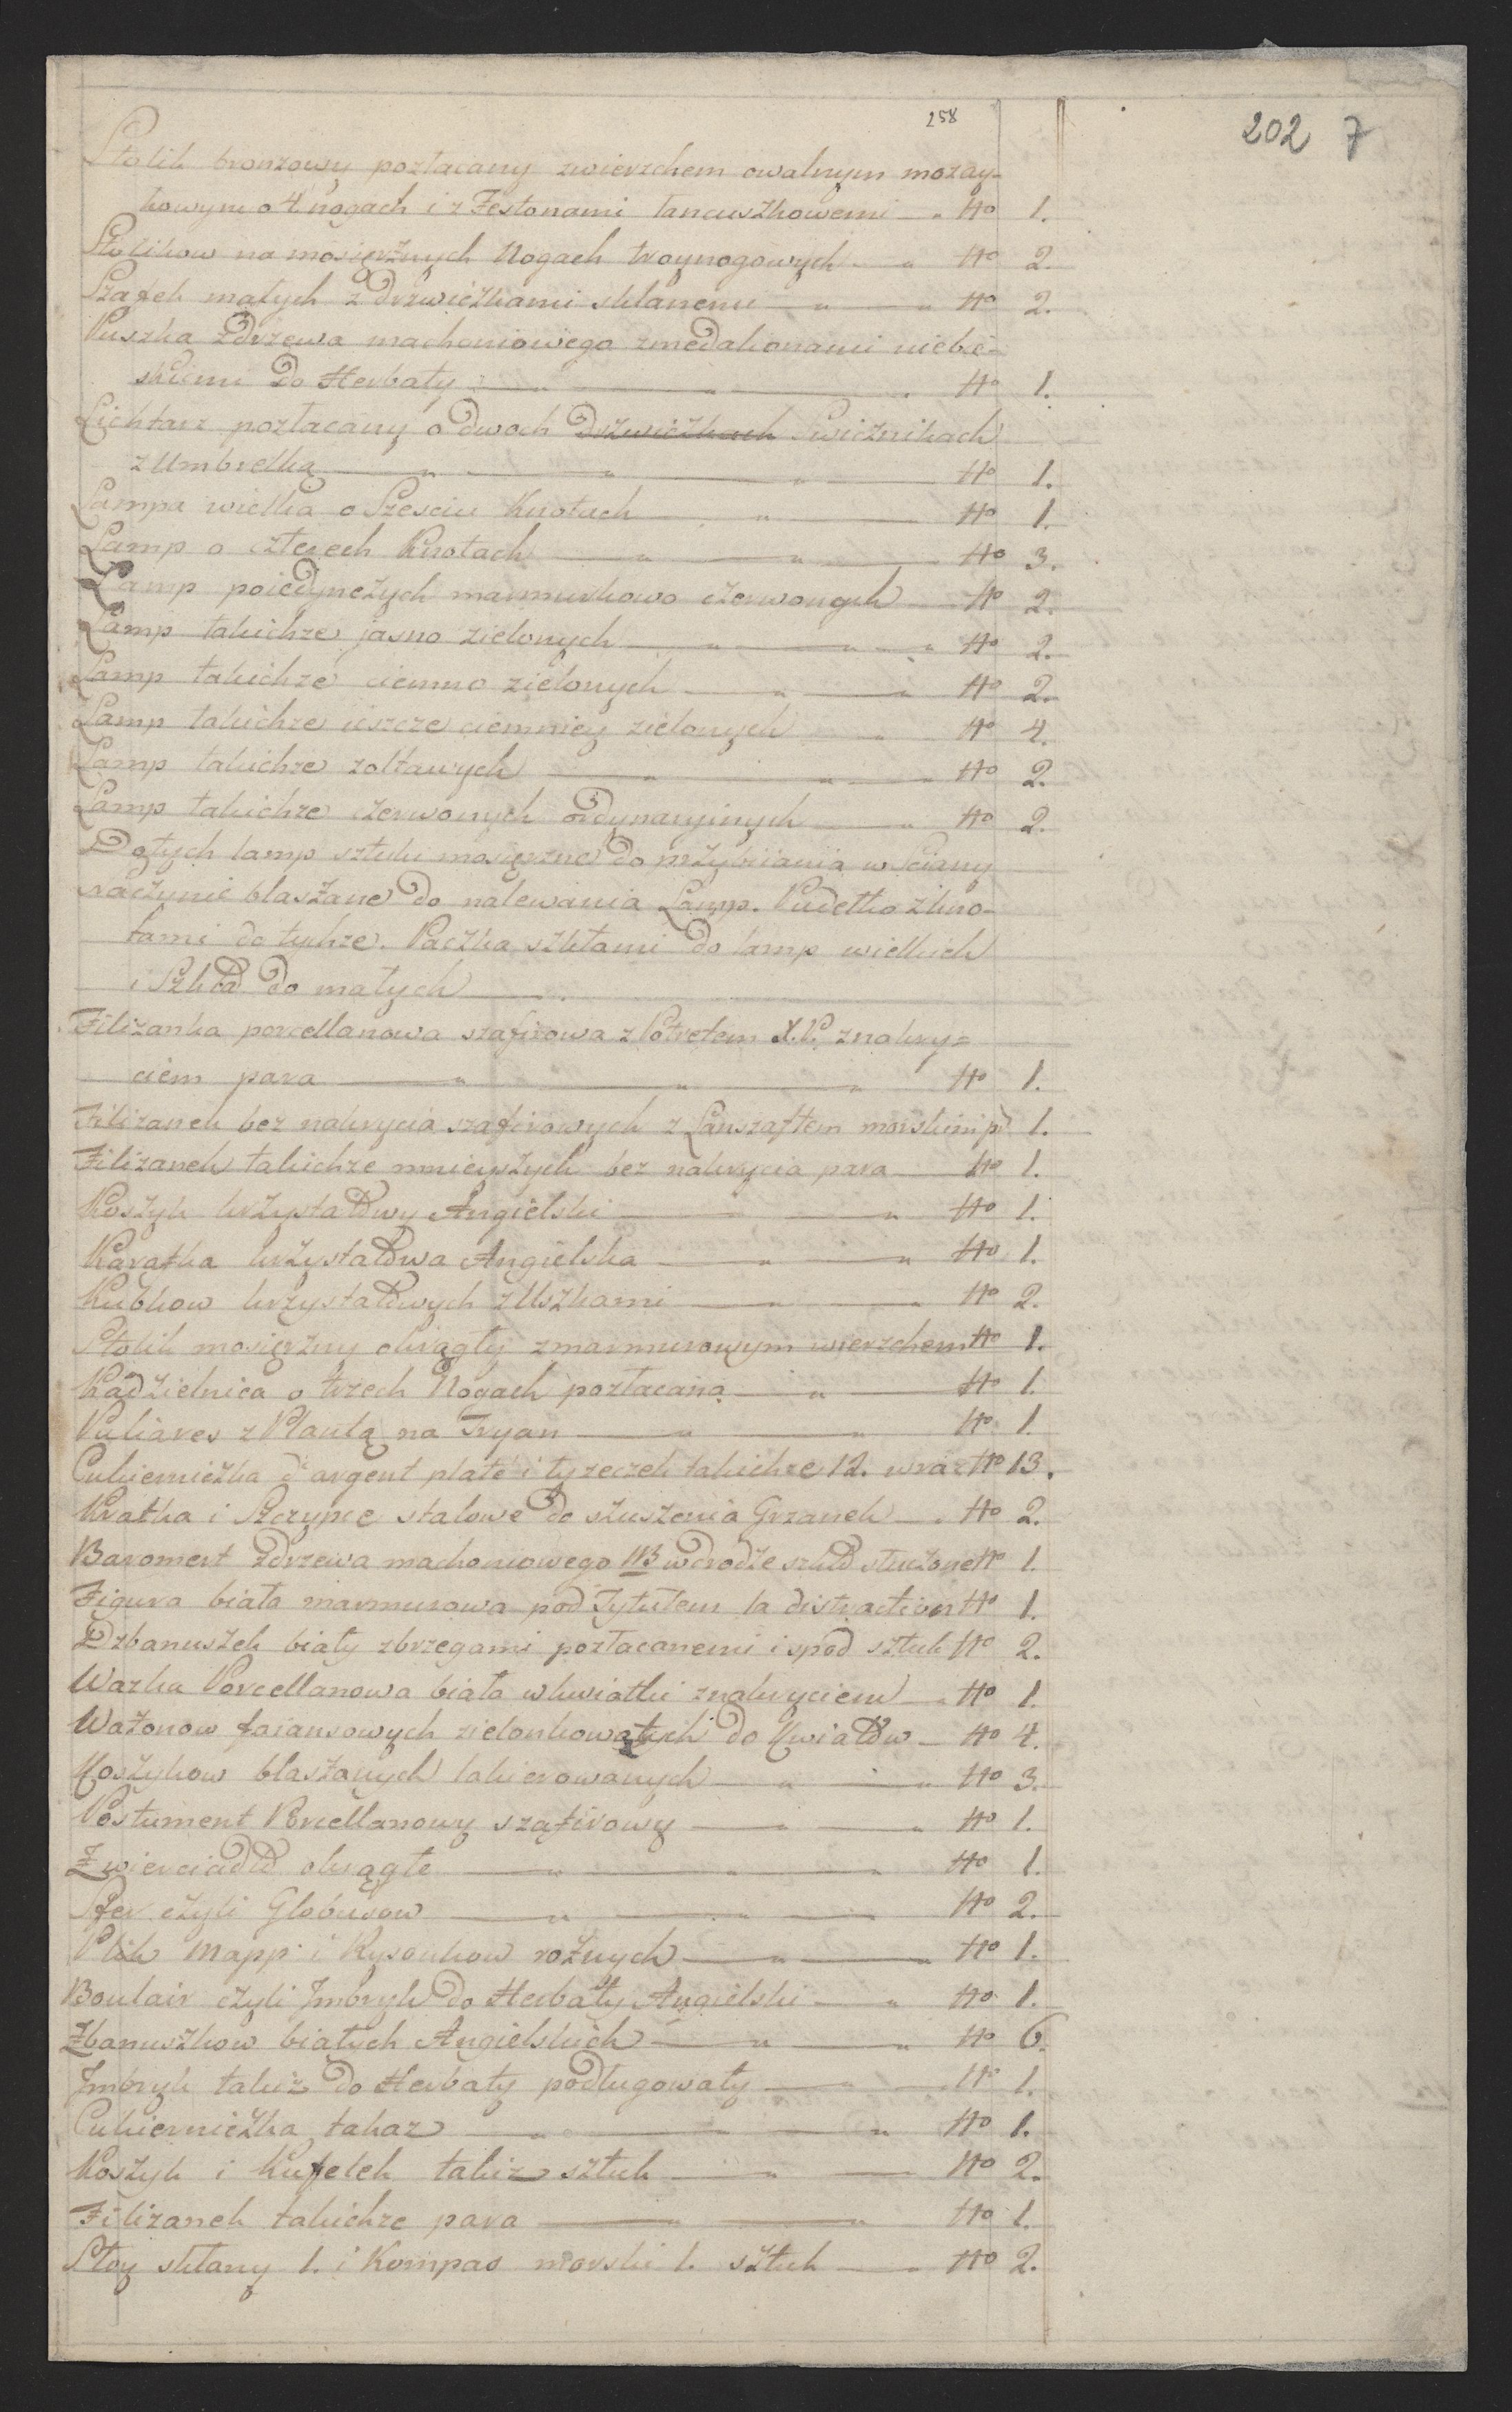 258
202 7
Stolik bronzowy pozłacany zwierzchem owalnym mozay-
kowym o 4 nogach i z Festonami łancuszkowemi — " No 1.
Stolikow na mosiężnych Nogach troynogowych — " No 2.
Szafek małych z Drzwiczkami szklanemi — " — " No 2.
Puszka zdrzewa machoniowego zmedalionami niebie-
skiemi do Herbaty — " — " No 1.
Lichtarz pozłacany o dwoch Drzwiczkach Swicznikach
z Umbrelką — " — " — " No 1.
Lampa wielka o Szesciu Knotach — " — No 1.
Lamp o czterech Knotach — " — " — No 3.
Lamp poiedynczych marmurkowo czerwonych — No 2.
Lamp takichze jasno zielonych — " — " — " No 2.
Lamp takichze ciemno zielonych — " — " No 2.
Lamp takichze ieszcze ciemniey zielonych — " No 4.
Lamp takichze zołtawych — " — " — " No 2.
Lamp takichze czerwonych ordynaryinych — " No 2.
Do tych lamp sztuki mosiężne do przybiiania w Sciany
naczynie blaszane do nalewania Lamp. Pudełko z kno-
tami do tychze. Paczka szkłami do lamp wielkich
i Szkład do małych —
Filizanka porcellanowa szafirowa z Potretem X. P. znakry=
ciem para — " — " — " No 1.
Filizanek bez nakrycia szafirowych z Lanszaftem morskim p. 1.
Filizanek takichze mnieyszych bez nakrycia para — No 1.
Koszyk krzyształowy Angielski — " — " No 1.
Karafka krzyształowa Angielska — " — " No 1.
Kubkow krzyształowych z Uszkami — " — " No 2.
Stolik mosiężny okrągły zmarmurowym wierzchem No 1.
Kadzielnica o trzech Nogach pozłacana — " — No 1.
Puliares z Plantą na Tryan — " — " No 1.
Cukierniczka d'argent platé i łyzeczek takichze 12. wraz No 13.
Kratka i Szczypce stalowe do szuszenia Grzanek — " No 2.
Baromert zdrzewa machoniowego NB wdrodze szkło stłuczone No 1.
Figura biała marmurowa pod Tytułem la distraction No 1.
Dzbanuszek biały zbrzegami pozłacanemi i spod sztuk No 2.
Wazka Porcellanowa biała wkwiatki znakryciem — " No 1.
Wazonow faiansowych zielonkowatych do Kwiatow — No 4.
Koszykow blaszanych lakierowanych — " — " No 3.
Postument Porcellanowy szafirowy — " — " No 1.
Zwierciadło okrągłe — " — " — " No 1.
Sfer czyli Globusow — " — " — No 2.
Plik Mapp i Rysonkow roznych — " — " No 1.
Boulair czyli Jmbryk do Herbaty Angielski — " No 1.
Zbanuszkow białych Angielskich — " — " No 6.
Jmbryk takiz do Herbaty podługowaty — " No 1.
Cukierniczka takaz — " — " — " No 1.
Koszyk i Kufelek takiz sztuk — " — No 2.
Filizanek takichze para — " — " No 1.
Słoy szklany 1. i Kompas morski 1. sztuk — " No 2.